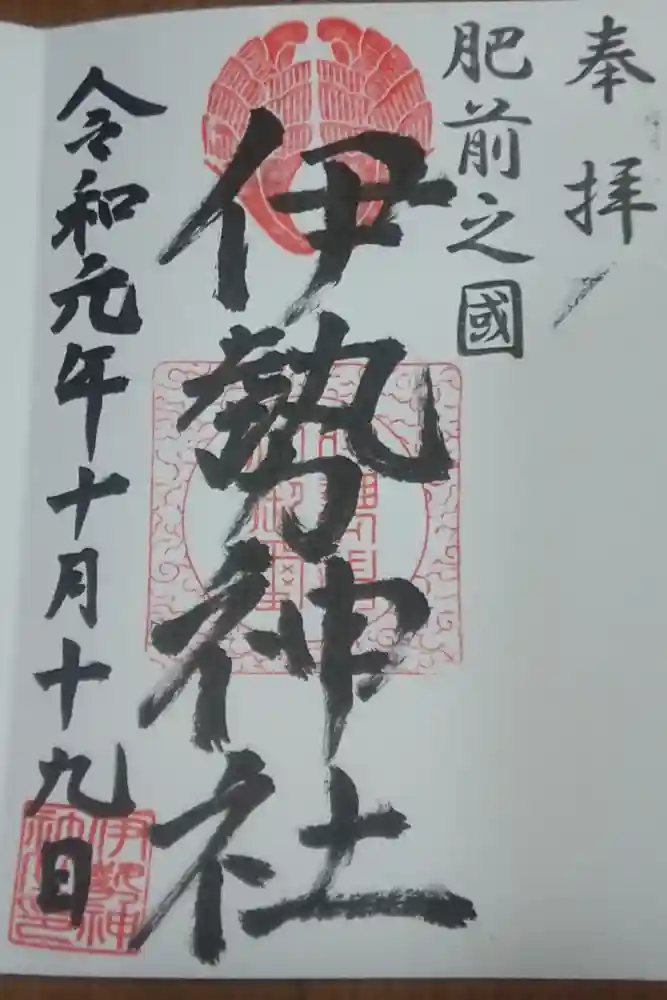 奉拝
肥前之國
伊勢神社
令和元年十月十九日
伊勢神
社之印